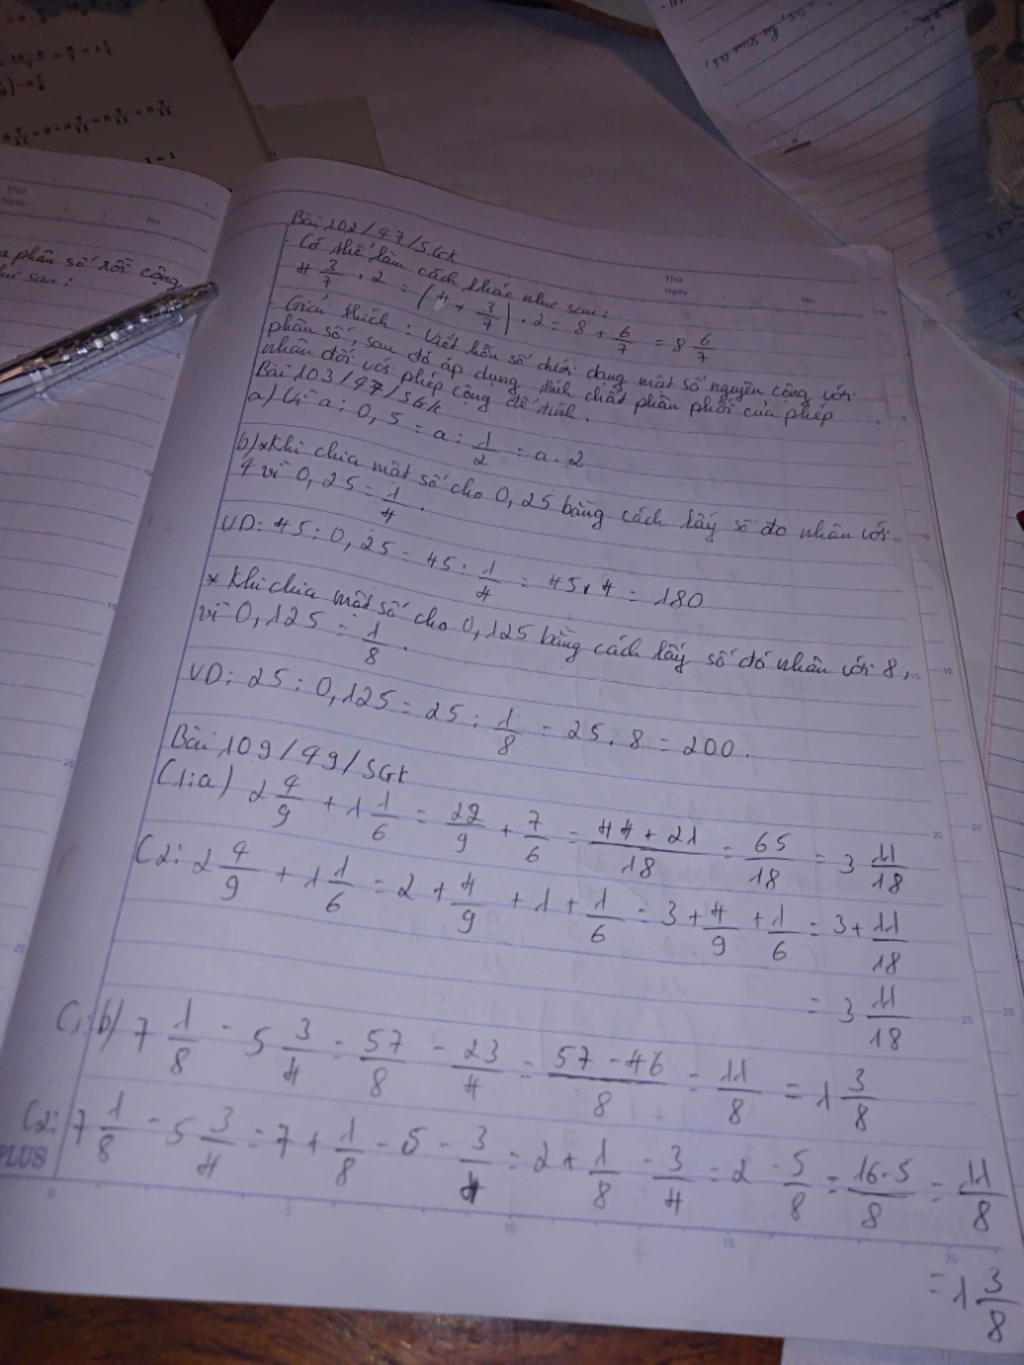 Thứ
Ngày
No.
a phân số rồi cộng
như sau:
Thứ
Ngày
No.
Bài 102/47/SGK
- Có thể làm cách khác như sau:
4 3/7 . 2 = (4 + 3/7) . 2 = 8 + 6/7 = 8 6/7
- Giải thích: Viết hỗn số dưới dạng một số nguyên cộng với
phân số, sau đó áp dụng tính chất phân phối của phép
nhân đối với phép cộng để tính.
Bài 103/47/SGK
a) Vì a : 0,5 = a : 1/2 = a . 2
b) * Khi chia một số cho 0,25 bằng cách lấy số đo nhân với
4 vì 0,25 = 1/4.
VD: 45 : 0,25 = 45 : 1/4 = 45 . 4 = 180
* Khi chia một số cho 0,125 bằng cách lấy số đó nhân với 8,
vì 0,125 = 1/8.
VD: 25 : 0,125 = 25 : 1/8 = 25 . 8 = 200.
Bài 109/49/SGK
C1: a) 2 4/9 + 1 1/6 = 22/9 + 7/6 = 44 + 21/18 = 65/18 = 3 11/18
C2: 2 4/9 + 1 1/6 = 2 + 4/9 + 1 + 1/6 = 3 + 4/9 + 1/6 = 3 + 11/18
= 3 11/18
C1: b) 7 1/8 - 5 3/4 = 57/8 - 23/4 = 57 - 46/8 = 11/8 = 1 3/8
C2: 7 1/8 - 5 3/4 = 7 + 1/8 - 5 - 3/4 = 2 + 1/8 - 3/4 = 2 - 5/8 = 16 - 5/8 = 11/8
= 1 3/8
PLUS